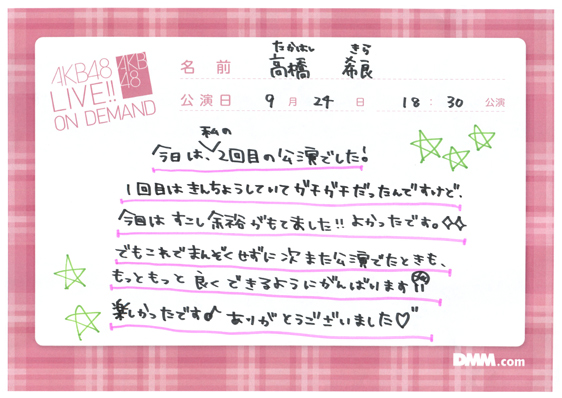 AKB48
LIVE!!
ON DEMAND
AKB
48
名前 たかはし きら
高橋 希良
公演日 9月24日 18:30公演
私の
今日は、2回目の公演でした!
1回目はきんちょうしていてガチガチだったんですけど、
今回はすこし余裕がもてました!!よかったです。
でもこれでまんぞくせずに次また公演でたときも、
もっともっと良くできるようにがんばります
楽しかったです♪ ありがとうございました♡
DMM.com